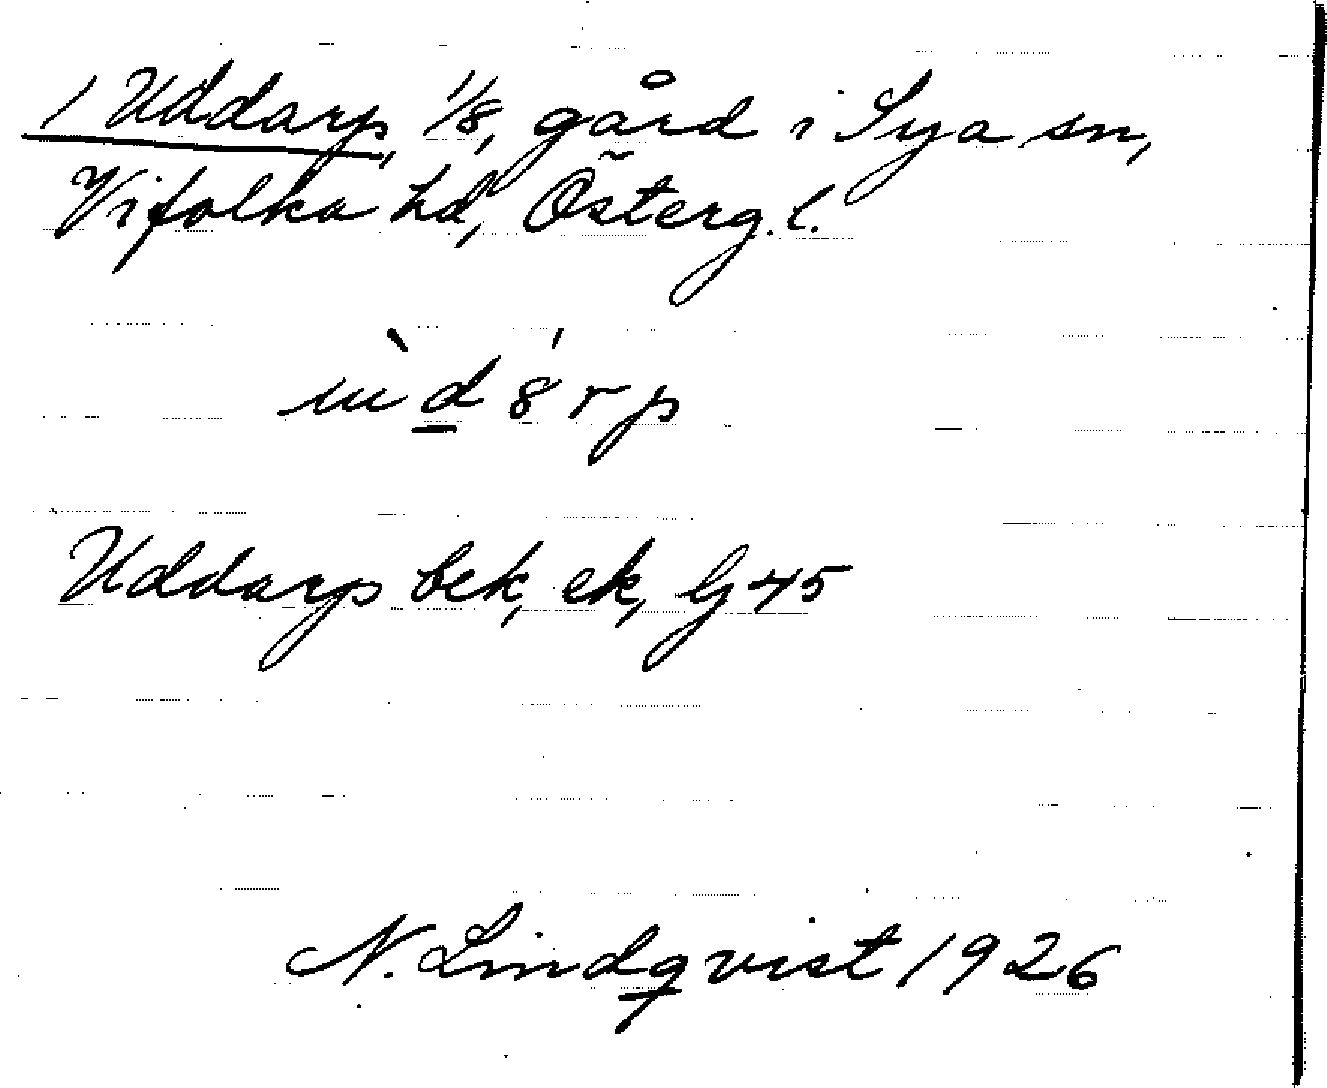 / Uddarp, 1/8, gård i Sya sn,
Vifolka hd, Österg. l.
ùd 8́ r p
Uddarp bek, ek, Gj 45
N. Lindqvist 1926